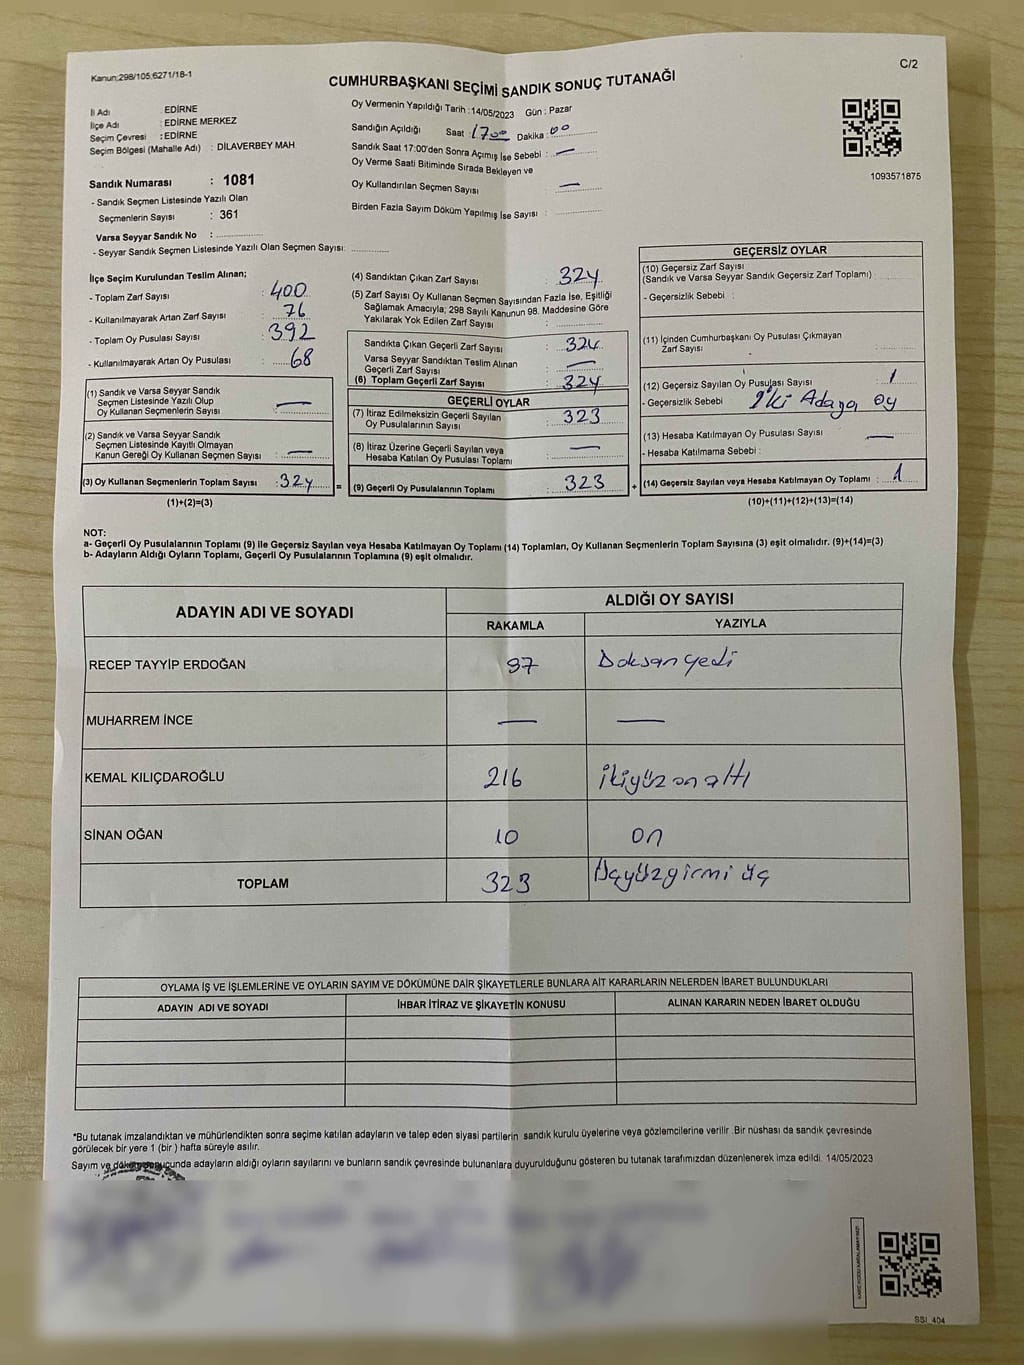 Kanun:298/105;6271/18-1
C/2
CUMHURBAŞKANI SEÇİMİ SANDIK SONUÇ TUTANAĞI
İl Adı : EDİRNE
İlçe Adı : EDİRNE MERKEZ
Seçim Çevresi : EDİRNE
Seçim Bölgesi (Mahalle Adı) : DİLAVERBEY MAH
Sandık Numarası : 1081
- Sandık Seçmen Listesinde Yazılı Olan
Seçmenlerin Sayısı : 361
Varsa Seyyar Sandık No :
- Seyyar Sandık Seçmen Listesinde Yazılı Olan Seçmen Sayısı:
Oy Vermenin Yapıldığı Tarih : 14/05/2023 Gün : Pazar
Sandığın Açıldığı Saat : 1700 Dakika : 00
Sandık Saat 17:00'den Sonra Açımış İse Sebebi : —
Oy Verme Saati Bitiminde Sırada Bekleyen ve
Oy Kullandırılan Seçmen Sayısı —
Birden Fazla Sayım Döküm Yapılmış İse Sayısı :
1093571875
İlçe Seçim Kurulundan Teslim Alınan;
- Toplam Zarf Sayısı : 400
- Kullanılmayarak Artan Zarf Sayısı : 76
- Toplam Oy Pusulası Sayısı : 392
- Kullanılmayarak Artan Oy Pusulası : 68
(1) Sandık ve Varsa Seyyar Sandık
Seçmen Listesinde Yazılı Olup
Oy Kullanan Seçmenlerin Sayısı : —
(2) Sandık ve Varsa Seyyar Sandık
Seçmen Listesinde Kayıtlı Olmayan
Kanun Gereği Oy Kullanan Seçmen Sayısı : —
(3) Oy Kullanan Seçmenlerin Toplam Sayısı : 324
(1)+(2)=(3)
(4) Sandıktan Çıkan Zarf Sayısı : 324
(5) Zarf Sayısı Oy Kullanan Seçmen Sayısından Fazla İse, Eşitliği
Sağlamak Amacıyla; 298 Sayılı Kanunun 98. Maddesine Göre
Yakılarak Yok Edilen Zarf Sayısı :
Sandıkta Çıkan Geçerli Zarf Sayısı : 324
Varsa Seyyar Sandıktan Teslim Alınan
Geçerli Zarf Sayısı : —
(6) Toplam Geçerli Zarf Sayısı : 324
GEÇERLİ OYLAR
(7) İtiraz Edilmeksizin Geçerli Sayılan
Oy Pusulalarının Sayısı : 323
(8) İtiraz Üzerine Geçerli Sayılan veya
Hesaba Katılan Oy Pusulası Toplamı : —
= (9) Geçerli Oy Pusulalarının Toplamı : 323
GEÇERSİZ OYLAR
(10) Geçersiz Zarf Sayısı
(Sandık ve Varsa Seyyar Sandık Geçersiz Zarf Toplamı) :
- Geçersizlik Sebebi :
(11) İçinden Cumhurbaşkanı Oy Pusulası Çıkmayan
Zarf Sayısı :
(12) Geçersiz Sayılan Oy Pusulası Sayısı : 1
- Geçersizlik Sebebi : İki Adaya oy
(13) Hesaba Katılmayan Oy Pusulası Sayısı : —
- Hesaba Katılmama Sebebi :
+ (14) Geçersiz Sayılan veya Hesaba Katılmayan Oy Toplamı : 1
(10)+(11)+(12)+(13)=(14)
NOT:
a- Geçerli Oy Pusulalarının Toplamı (9) ile Geçersiz Sayılan veya Hesaba Katılmayan Oy Toplamı (14) Toplamları, Oy Kullanan Seçmenlerin Toplam Sayısına (3) eşit olmalıdır. (9)+(14)=(3)
b- Adayların Aldığı Oyların Toplamı, Geçerli Oy Pusulalarının Toplamına (9) eşit olmalıdır.
ADAYIN ADI VE SOYADI ALDIĞI OY SAYISI
RAKAMLA YAZIYLA
RECEP TAYYİP ERDOĞAN 97 Doksanyedi
MUHARREM İNCE — —
KEMAL KILIÇDAROĞLU 216 ikiyüzonaltı
SİNAN OĞAN 10 on
TOPLAM 323 Üçyüzyirmi üç
OYLAMA İŞ VE İŞLEMLERİNE VE OYLARIN SAYIM VE DÖKÜMÜNE DAİR ŞİKAYETLERLE BUNLARA AİT KARARLARIN NELERDEN İBARET BULUNDUKLARI
ADAYIN ADI VE SOYADI İHBAR İTİRAZ VE ŞİKAYETİN KONUSU ALINAN KARARIN NEDEN İBARET OLDUĞU
*Bu tutanak imzalandıktan ve mühürlendikten sonra seçime katılan adayların ve talep eden siyasi partilerin sandık kurulu üyelerine veya gözlemcilerine verilir .Bir nüshası da sandık çevresinde
görülecek bir yere 1 (bir ) hafta süreyle asılır.
Sayım ve döküm sonucunda adayların aldığı oyların sayılarını ve bunların sandık çevresinde bulunanlara duyurulduğunu gösteren bu tutanak tarafımızdan düzenlenerek imza edildi. 14/05/2023
SSI_404